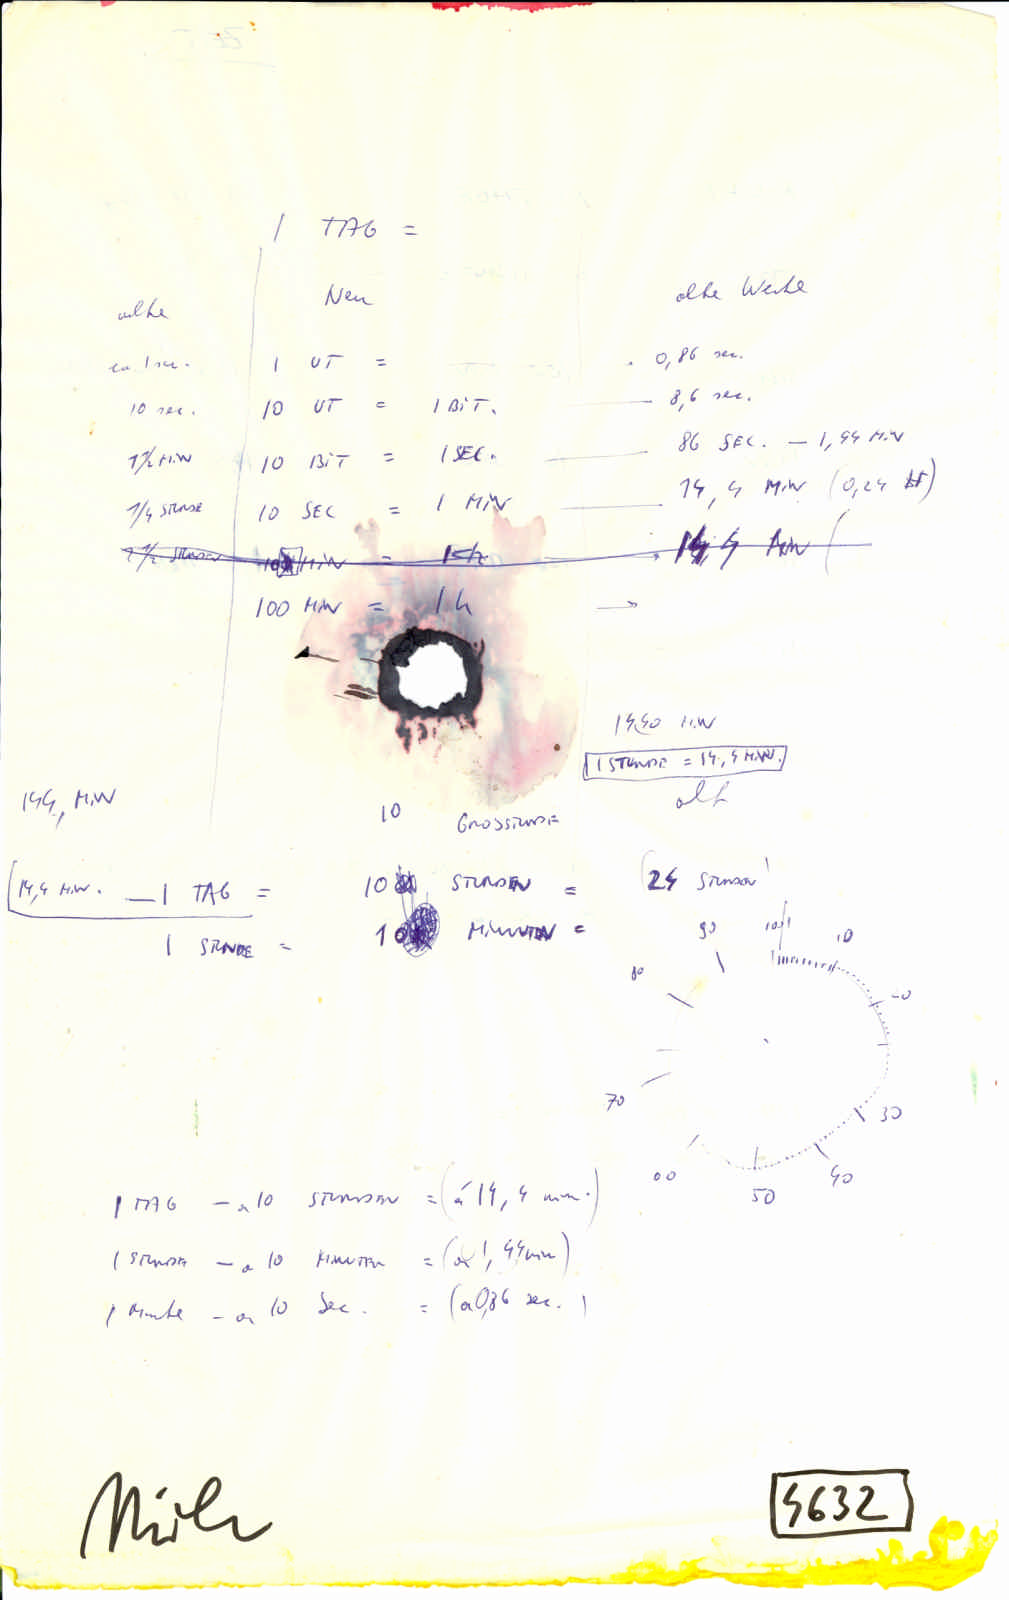 1 TAG =
alte Neu alte Werte
ca. 1 sec. 1 UT = 0,86 sec.
10 sec. 10 UT = 1 BiT. 8,6 sec.
1½ MiN 10 BiT = 1 SEC. 86 SEC. – 1,44 MiN
1/4 STUNDE 10 SEC = 1 MiN 14,4 MiN (0,24
1½ STUNDEN MiN = 1 h 14,4 MiN (
100 MiN = 1 h →
1440 MiN
1 STUNDE = 14,4 MiN.
alt
144, MiN 10 GROSSTUNDE
14,4 MiN. — 1 TAG = 10 STUNDEN = (24 STUNDEN)
1 STUNDE = 10 MiNUTEN =
90 10
80 20
70 30
60 50 40
1 TAG – a 10 STUNDEN = (á 14,4 min.)
1 STUNDE – a 10 MINUTEN = (a 1,44 min)
1 Minute – a 10 Sec. = (a 0,86 sec.)
4632